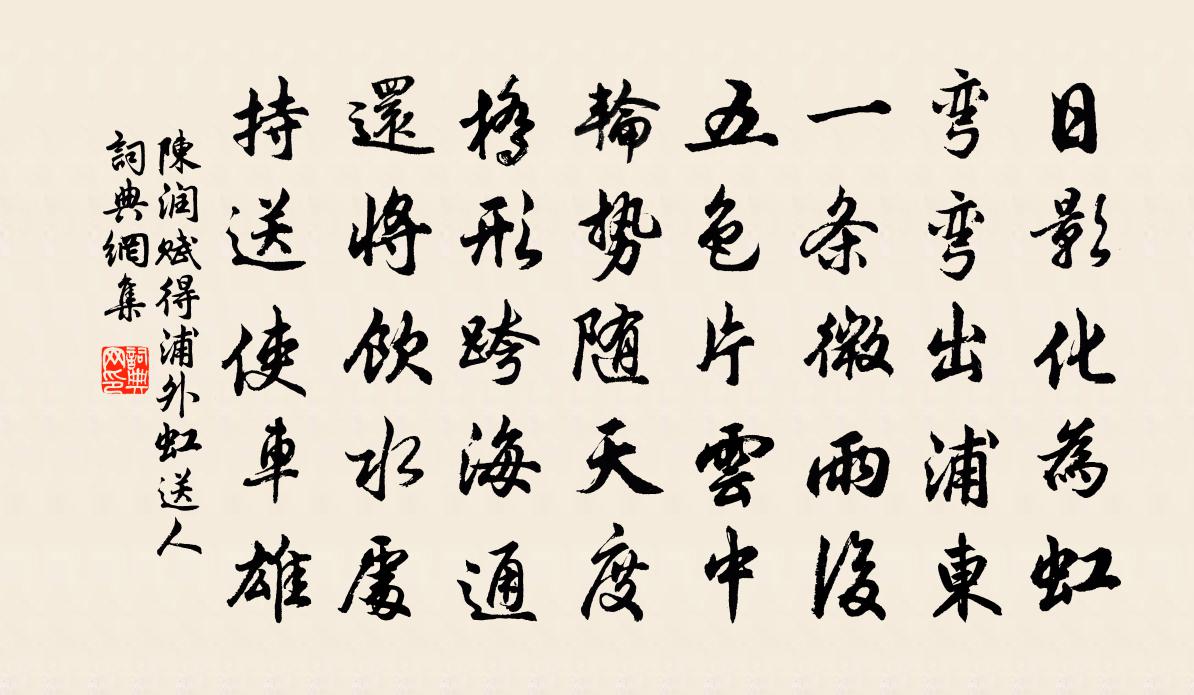 日影化為虹
弯弯出浦東
一条微雨後
五色片雲中
輪势随天度
橋形跨海通
還將飲水處
持送使車雄
陳润赋得浦外虹送人
詞典網集
詞典
网印